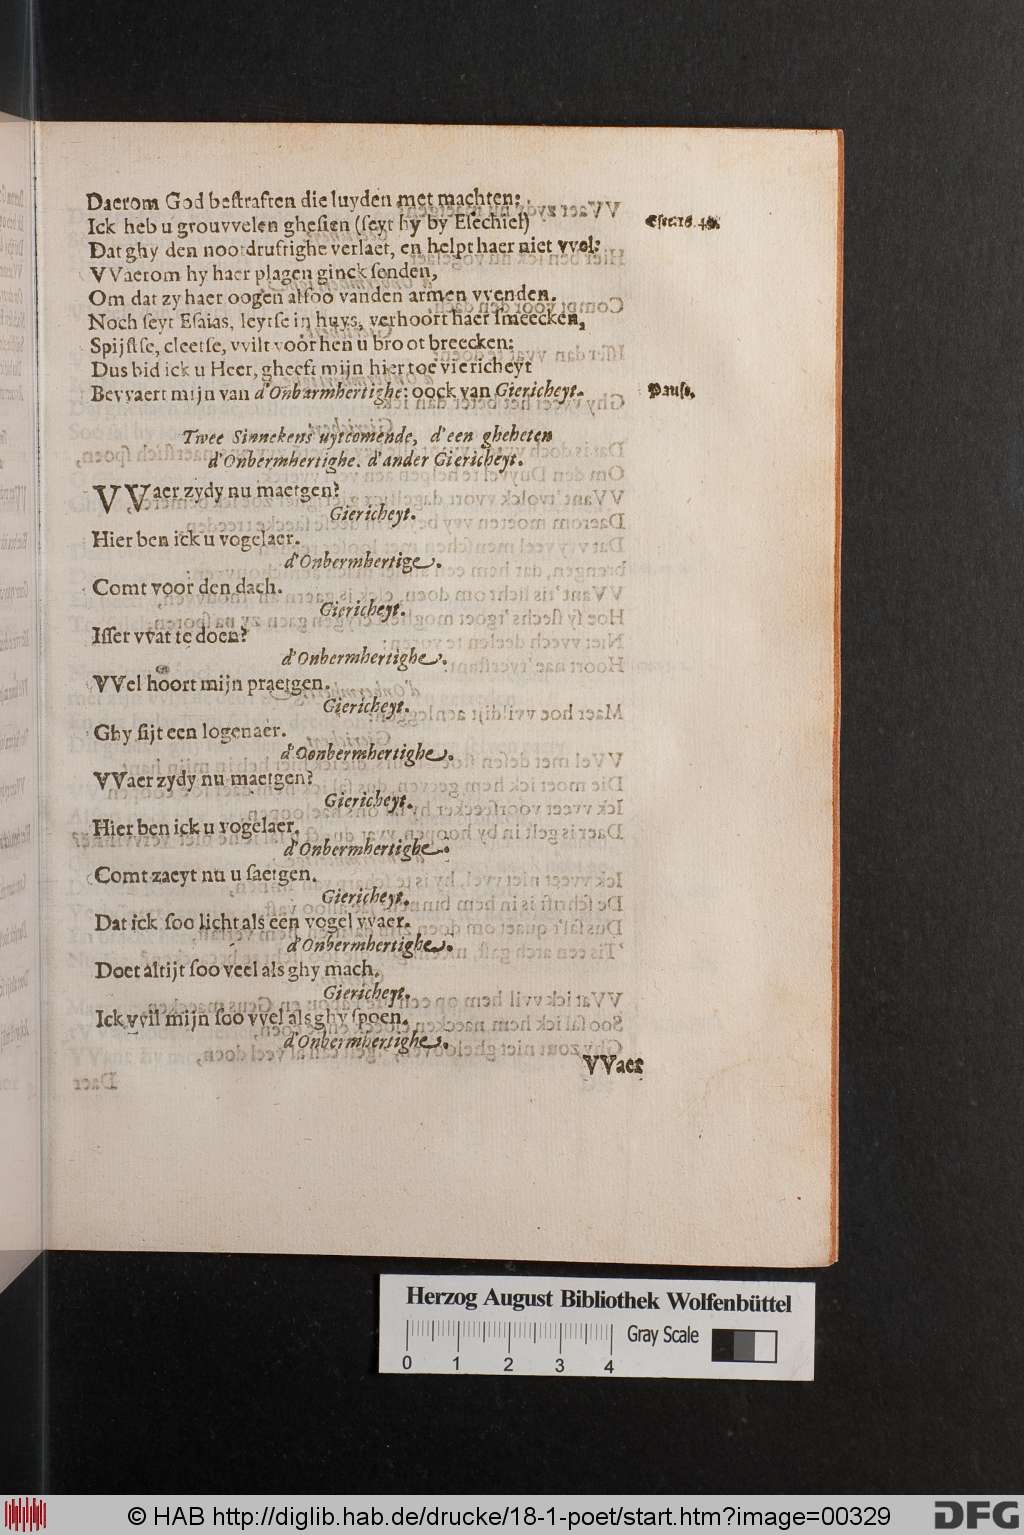 Daerom God bestraften die luyden met machten:
Ick heb u grouvvelen ghesien (seyt hy by Esechiel) Esec.16. 49.
Dat ghy den nootdruftighe verlaet, en helpt haer niet vvel:
VVaerom hy haer plagen ginck senden,
Om dat zy haer oogen alsoo vanden armen vvenden.
Noch seyt Esaias, leytse in huys, verhoort haer smeecken,
Spijstse, cleetse, vvilt voor hen u broot breecken:
Dus bid ick u Heer, gheeft mijn hier toe viericheyt
Bevvaert mijn van d'Onbarmhertighe: oock van Giericheyt. Pause.
Twee Sinnekens uytcomende, d'een gheheten
d'Onbermhertighe. d'ander Giericheyt.
VVaer zydy nu maetgen?
Giericheyt.
Hier ben ick u vogelaer.
d'Onbermhertige.
Comt voor den dach.
Giericheyt.
Isser vvat te doen?
d'Onbermhertighe.
VVel hoort mijn praetgen.
Giericheyt.
Ghy sijt een logenaer.
d'Oonbermhertighe.
VVaer zydy nu maetgen?
Giericheyt.
Hier ben ick u vogelaer.
d'Onbermhertighe.
Comt zaeyt nu u saetgen.
Giericheyt.
Dat ick soo licht als een vogel vvaer.
d'Onbermhertighe.
Doet altijt soo veel als ghy mach.
Giericheyt.
Ick vvil mijn soo vvel als ghy spoen.
d'Onbermhertighe.
VVaer
Herzog August Bibliothek Wolfenbüttel
Gray Scale
0 1 2 3 4
© HAB http://diglib.hab.de/drucke/18-1-poet/start.htm?image=00329
DFG